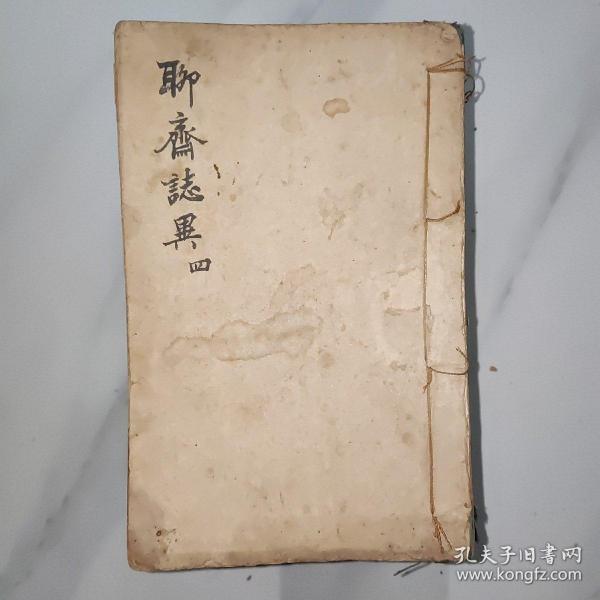 聊齋誌異 四
孔夫子旧書网
www.kongfz.com